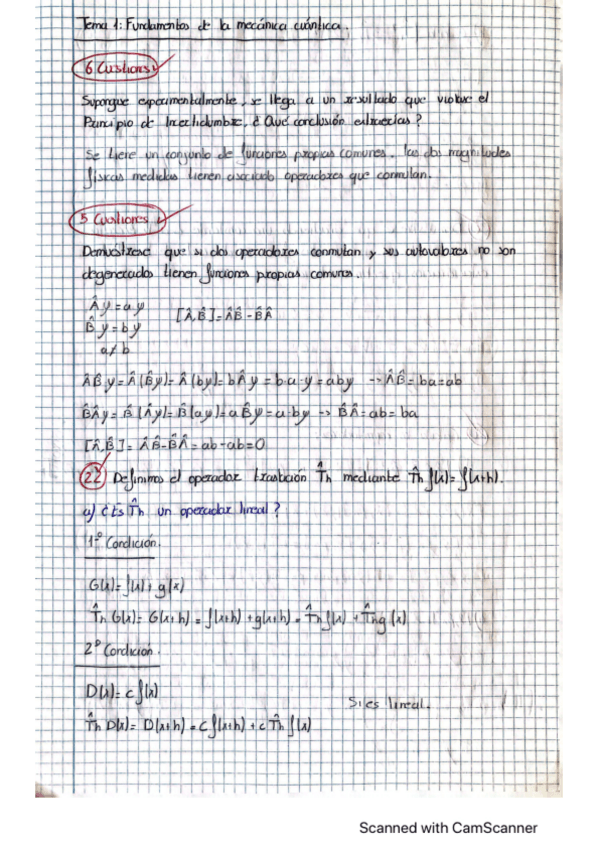 Tema 1: Fundamentos de la mecánica cuántica.
6 Cuestiones
Supongue experimentalmente, se llega a un resultado que violase el
Principio de Incertidumbre, ¿Qué conclusión extraerías?
Se tiene un conjunto de funciones propias comunes, las dos magnitudes
físicas medidas tienen asociado operadores que conmutan.
5 Cuestiones
Demuéstrese que si dos operadores conmutan y sus autovalores no son
degenerados tienen funciones propias comunes.
Ây = ay [Â,B̂] = ÂB̂ - B̂Â
B̂y = by
a≠b
ÂB̂y = Â(B̂y) = Â(by) = bÂy = b·a·y = aby → ÂB̂ = ba = ab
B̂Ây = B̂(Ây) = B̂(ay) = aB̂y = a·by → B̂Â = ab = ba
[Â,B̂] = ÂB̂-B̂Â = ab-ab = 0
22 Definimos el operador traslación T̂h mediante T̂h f(x) = f(x+h).
a) ¿Es T̂h un operador lineal?
1º Condición.
G(x) = f(x) + g(x)
T̂h G(x) = G(x+h) = f(x+h) + g(x+h) = T̂h f(x) + T̂h g(x)
2º Condición.
D(x) = c f(x)
Si es lineal.
T̂h D(x) = D(x+h) = c f(x+h) + c T̂h f(x)
Scanned with CamScanner